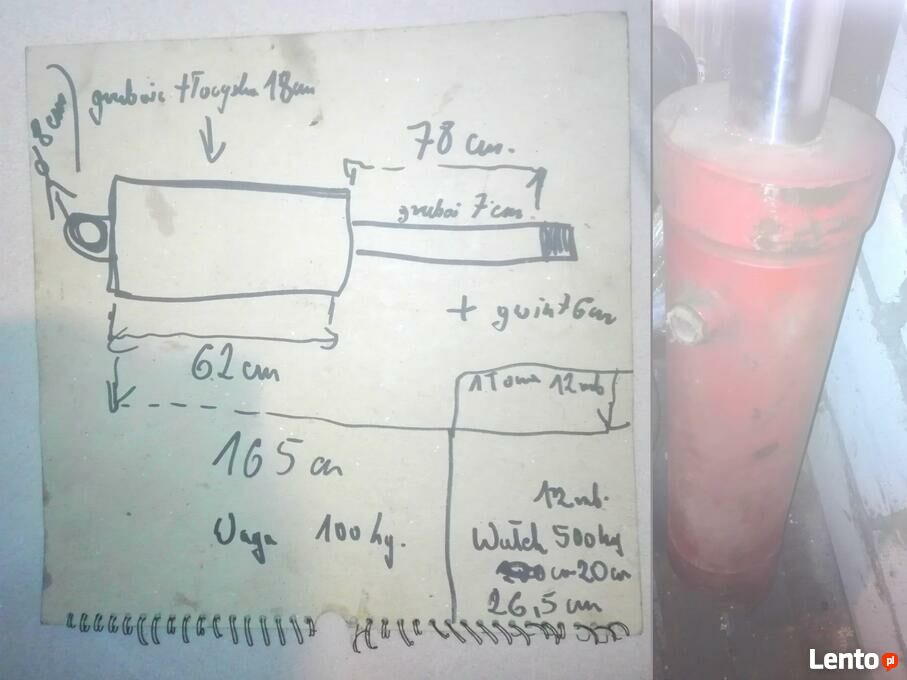 ø 8cm
grubość tłoczyska 18cm
78 cm.
grubość 7 cm.
+ gwint 6cm
62 cm
1 Tona 12mb
165 cm
Waga 100 kg.
12mb.
Wałek 500kg
cm 20cm
26,5 cm
Lento.pl